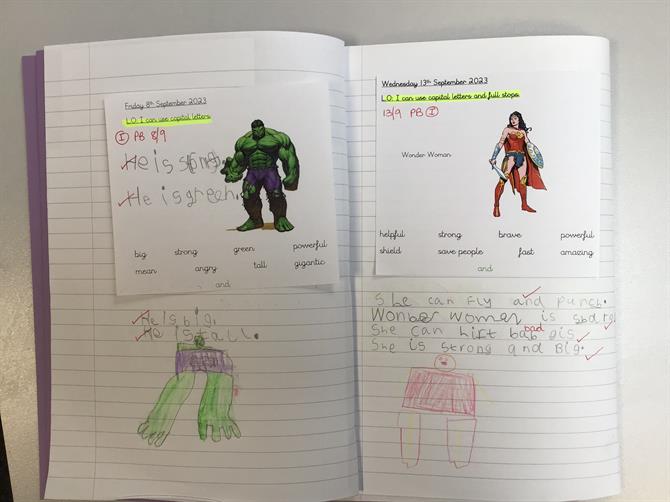 Friday 8th September 2023
LO: I can use capital letters
I PB 8/9
He is strong.
He is green.
big strong green powerful
mean angry tall gigantic
and
He is big.
He is tall.
Wednesday 13th September 2023
LO: I can use capital letters and full stops.
13/9 PB I
Wonder Woman
helpful strong brave powerful
shield save people fast amazing
and
She can fly and punch.
Wonber women is
She can hirt bab bad
She is strong and Big.